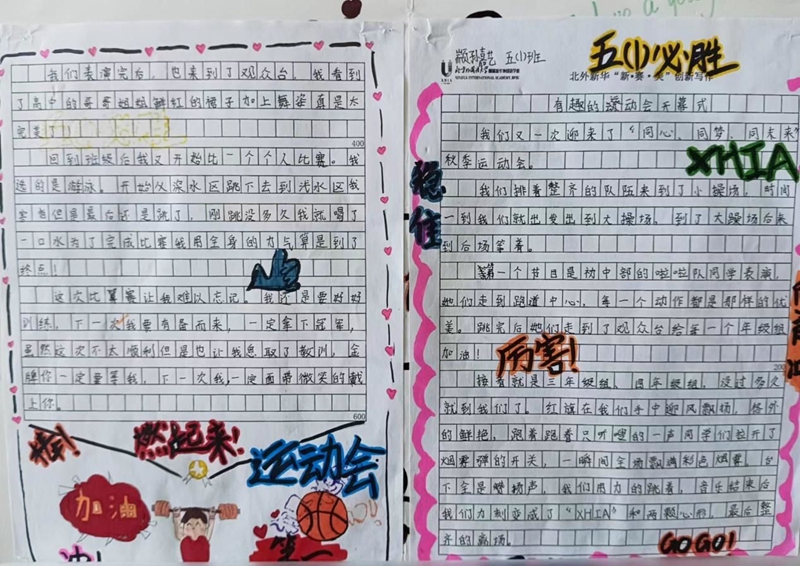 五(1)班
五(1)必胜
北外新华“新·赛·奥”创新写作
有趣的运动会开幕式
我们又一次迎来了“同心、同梦、同未来”
秋季运动会。
XHIA
稳住
我们排着整齐的队伍来到了小操场,时间
一到我们就出发出到大操场。到了大操场后来
到后场等着。
第一个节目是初中部的啦啦队同学表演,
她们走到跑道中心,每一个动作都是那样的优
美。跳完后她们走到了观众台给每一个年级组
加油!
厉害!
200
接着就是三年级组,四年级组,没过多久
就到我们了。红旗在我们手中迎风飘扬,格外
的鲜艳,跑着跑着只听嘭的一声同学们拉开了
烟雾弹的开关,一瞬间全场飘满彩色烟雾,台
下全是赞扬声,我们用力的跳着,音乐结束后
我们立刻变成了“XHIA”和两颗心形,最后整
齐的离场。
GOGO!
我们表演完后,也来到了观众台。我看到
了高中的哥哥姐姐鲜红的裙子加上舞姿真是太
完美了
400
回到班级后我又开始比一个个人比赛。我
选的是游泳。开始从深水区跳下去到浅水区我
害怕但是最后还是跳了,刚跳没多久我就喝了
一口水为了完成比赛我用全身的力气算是到了
终点!
这次比赛让我难以忘记。我还是要好好
训练。下一次我要有备而来,一定拿下冠军,
虽然这次不太顺利但是也让我吸取了教训,金
牌你一定要等我,下一次我一定面带微笑的戴
上你。
600
燃起来!
运动会
加油
第一
冲!